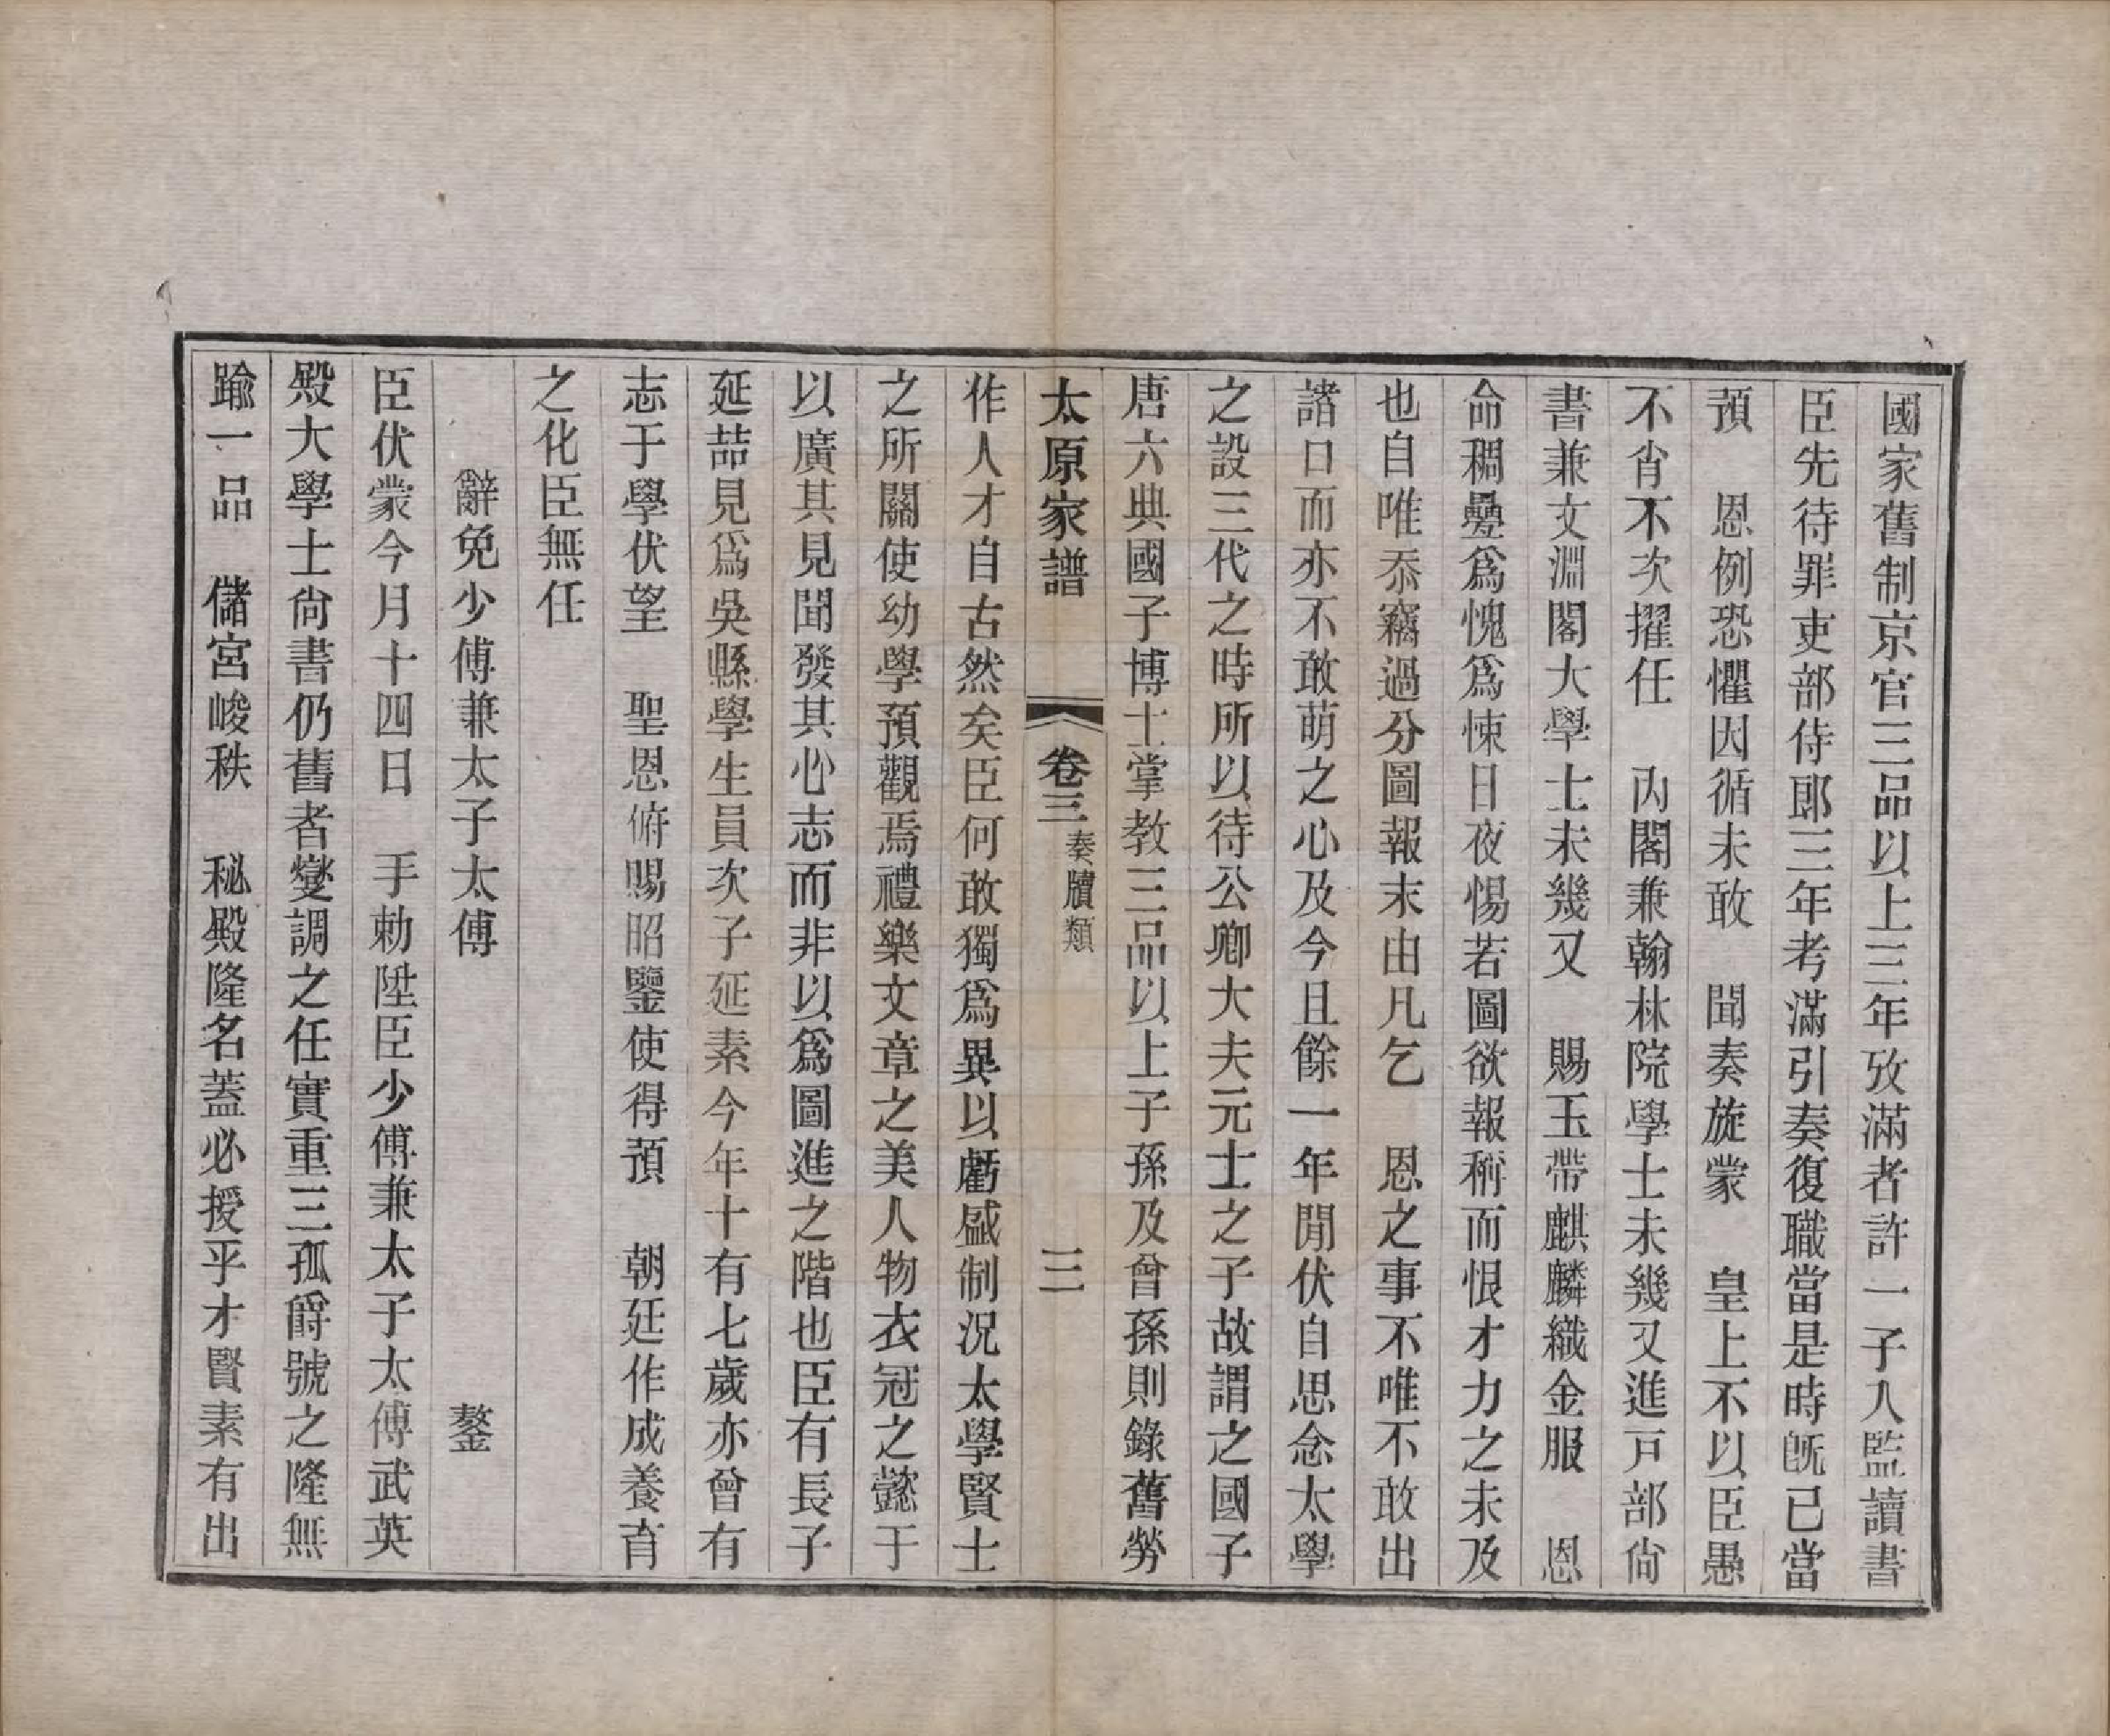 國家舊制京官三品以上三年攷滿者許一子入監讀書
臣先待罪吏部侍郎三年考滿引奏復職當是時旣已當
預　恩例恐懼因循未敢　聞奏旋蒙　皇上不以臣愚
不肖不次擢任　內閣兼翰林院學士未幾又進戸部尙
書兼文淵閣大學士未幾又　賜玉帶麒麟織金服　恩
命稠疊爲愧爲悚日夜惕若圖欲報稱而恨才力之未及
也自唯忝竊過分圖報末由凡乞　恩之事不唯不敢出
諸口而亦不敢萌之心及今且餘一年閒伏自思念太學
之設三代之時所以待公卿大夫元士之子故謂之國子
唐六典國子博士掌教三品以上子孫及曾孫則錄舊勞
太原家譜　卷三　奏牘類　三
作人才自古然矣臣何敢獨爲異以虧盛制況太學賢士
之所關使幼學預觀焉禮樂文章之美人物衣冠之懿于
以廣其見聞發其心志而非以爲圖進之階也臣有長子
延喆見爲吳縣學生員次子延素今年十有七歲亦曾有
志于學伏望　聖恩俯賜昭鑒使得預　朝廷作成養育
之化臣無任
辭免少傅兼太子太傅　鏊
臣伏蒙今月十四日　手勅陞臣少傅兼太子太傅武英
殿大學士尙書仍舊者燮調之任實重三孤爵號之隆無
踰一品　儲宮峻秩　秘殿隆名蓋必授乎才賢素有出